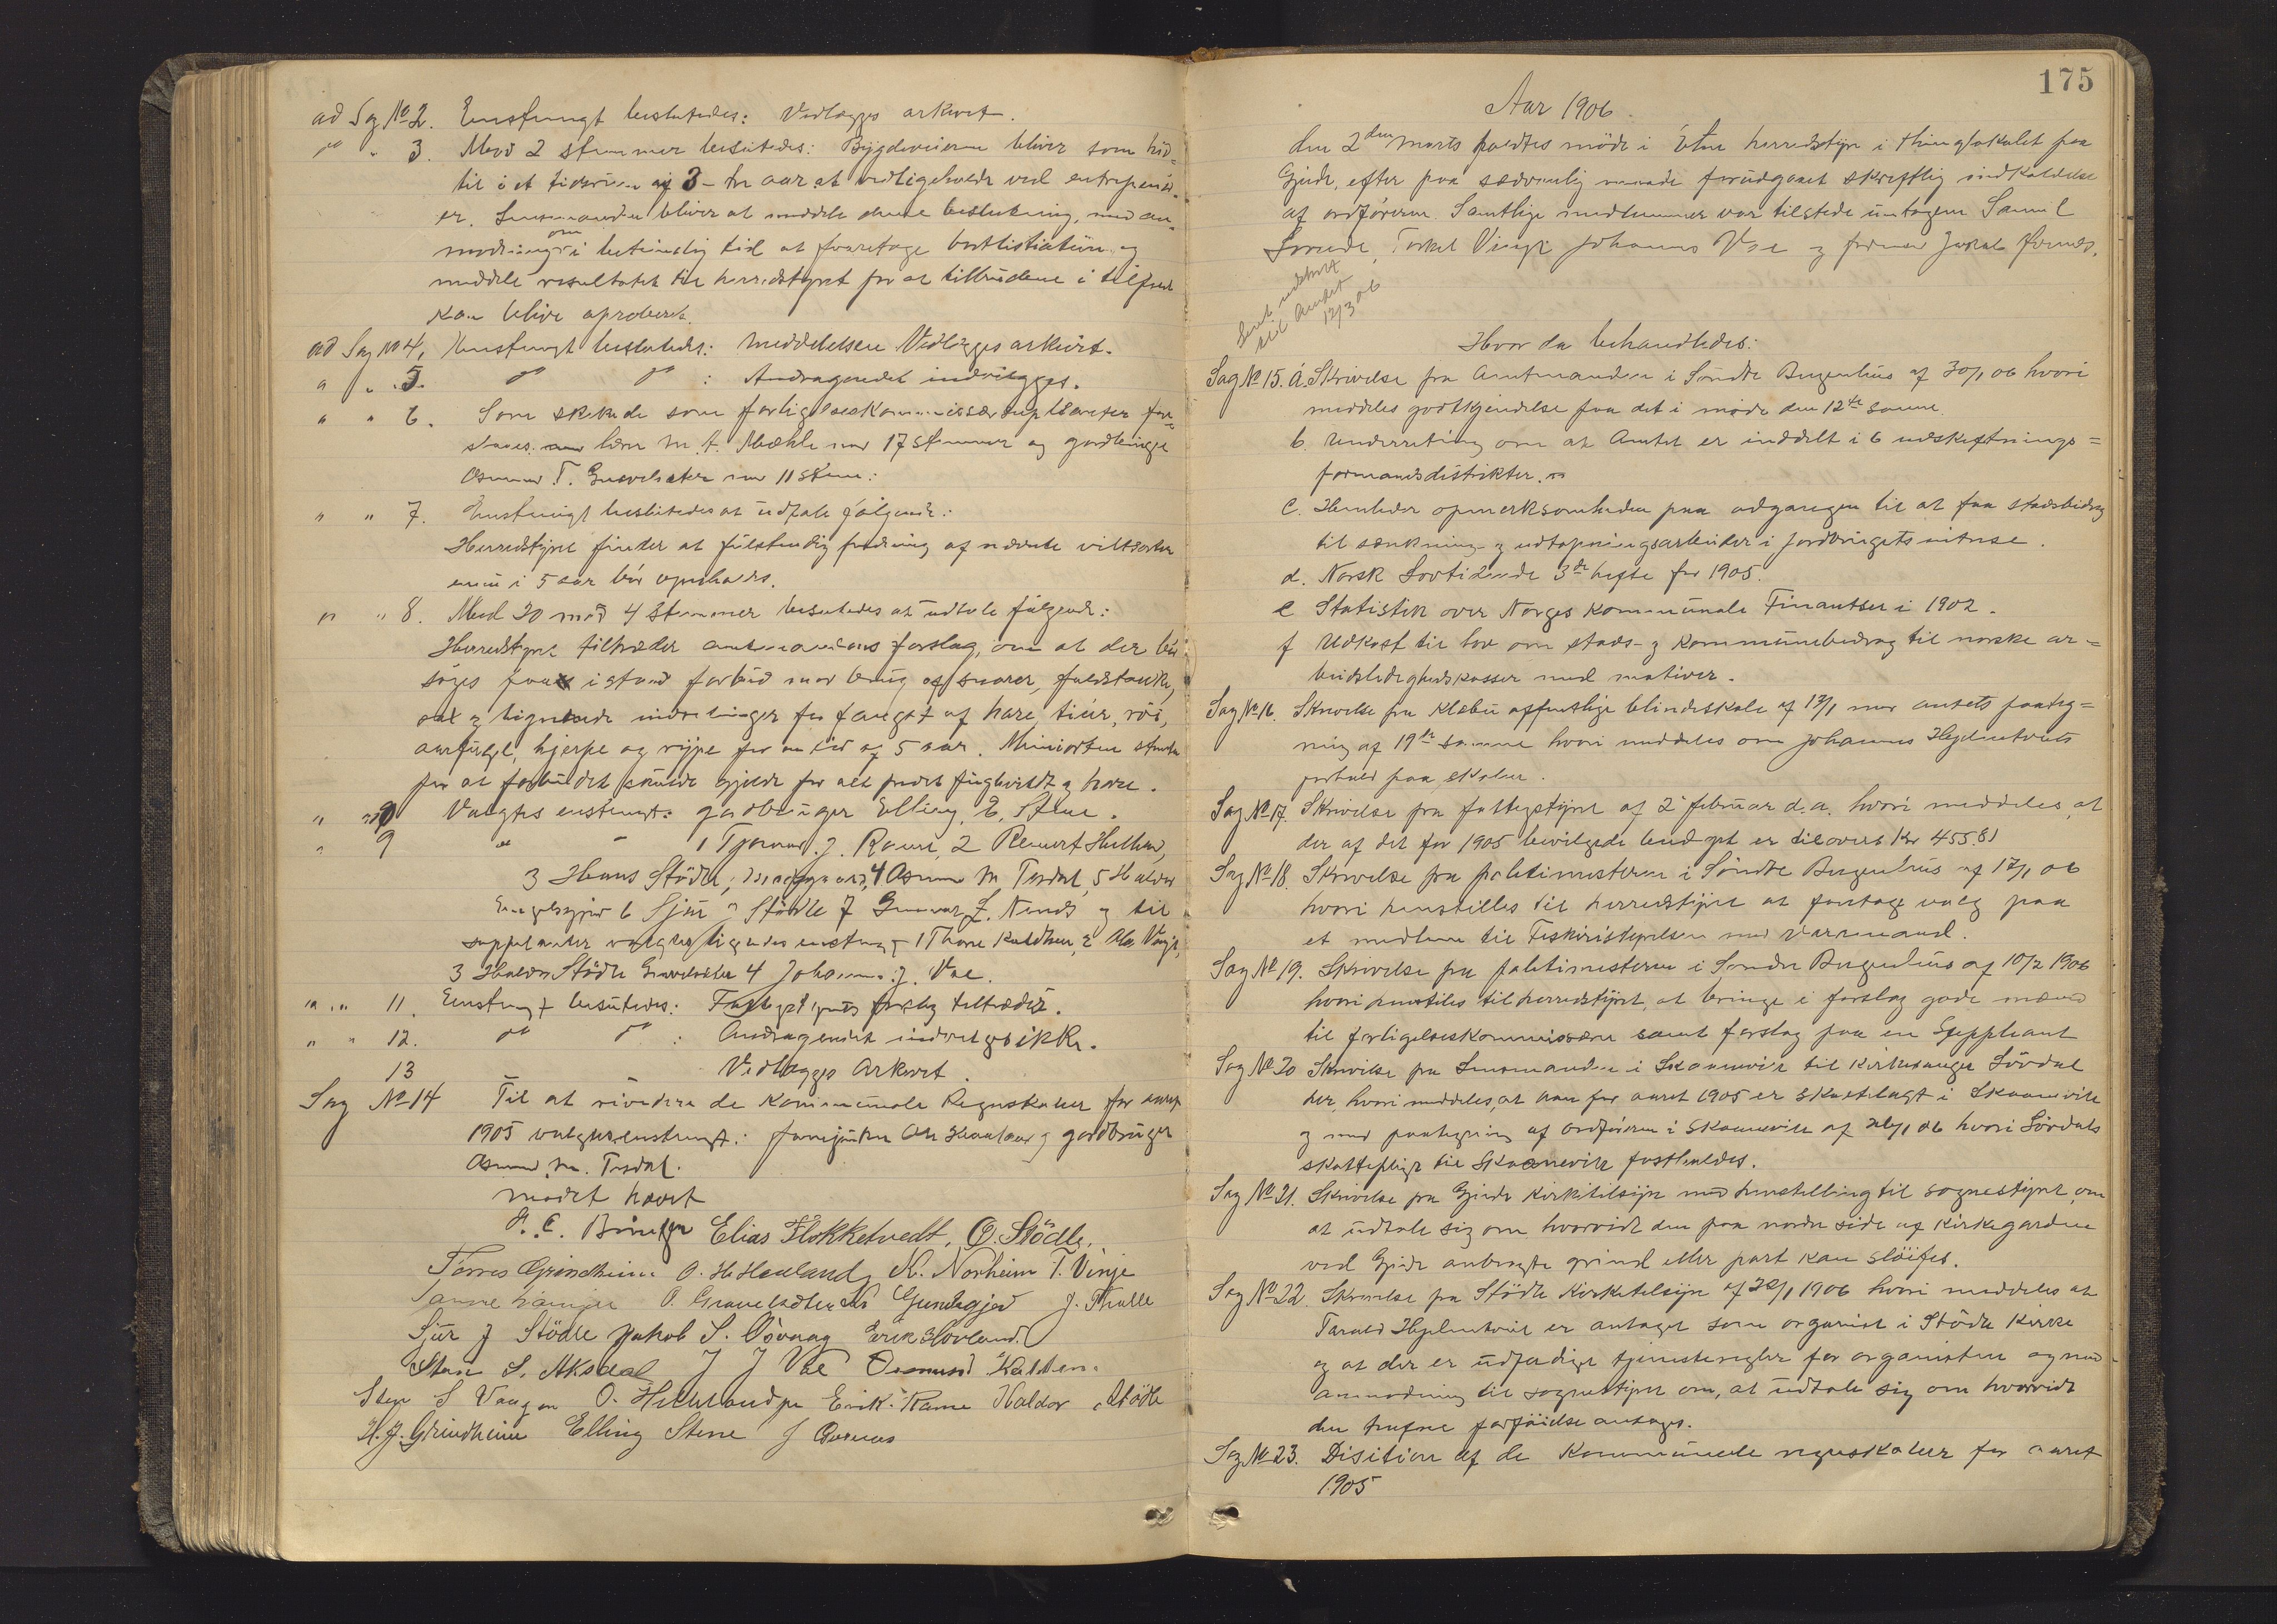 ad Sag No 2. Enstemmigt beslutedes: Vedlægges arkivet.
" " 3. Mod 2 stemmer beslutedes: Bygdeveierne bliver som hid=
til i et tidsrum af 3 - tre aar at vedligeholde ved entreprenör=
er. Lensmanden bliver at meddele denne beslutning, med an=
modning om i betimelig tid at foretage bortlisitation og
meddele resultatet til herredstyret for at tilbudene i tilfælde
kan blive aproberet.
ad Sag No 4. Enstemmigt beslutedes: Meddelelsen Vedlægges arkivet.
" " 5. " " : Andragendet indvilges.
" " 6. Som skikkede som forligelseskommissærsuppleanter fore=
slaaes lærer M. A. Mæhle med 17 stemmer og gardbruger
Asmund T. Gravelsæter med 11 stem:
" " 7. Enstemigt beslutedes at udtale følgende:
Herredstyret finder at fuldstændig fredning af nævnte viltsorter
ennu i 5 aar bör opretholdes.
" " 8. Med 20 mod 4 stemmer beslutedes at udtale følgende:
Herredstyret tiltræder amtmandens forslag, om at der bör
söges faaet istand forbud mod brug af snarer, fuldstændig,
og lignende indretninger for fangst af hare, tiur, röi,
aarfugl, hjerpe og rype for en tid af 5 aar. Minioriteten stemte
for at forbudet skulde gjelde for alt fredet fuglevildt og hare.
" " 10 Valgtes enstemt: gardbruger Elling E. Stene.
" 9 " " 1 Tjerand J. Rame, 2 Reinert Hetland,
3 Hans Stödle, 4 Asmund M Tesdal, 5 Halvor
6 Sjur J Stödle 7 Gunnar L. Nernes og til
suppleanter valgtes ligeledes enstemt 1 Thore Kaldheim, 2 Ola Vinje,
3 Haldor Stödle Gravelsæter 4 Johannes J. Vae.
" " 11. Enstemt beslutedes: Fattigstyrets forslag tiltrædes.
" " 12. " " : Andragendet indvilges ikke.
13 Vedlægges Arkivet.
Sag No 14 Til at revidere de kommunale Regnskaber for aaret
1905 valgtes enstemt: og gardbruger
Asmund M. Tesdal.
mødet hævet
Elias Flokketvedt. O. Stödle.
Torres Grindheim O. H. Hetland N. Norheim T. Vinje
O. Gravelsæter J. Tralle
Sjur J Stödle Jakob S. Osvaag Erik Hovland
Sten S. Aksdal J J Vae Osmund Kaldem
Sten S Vaagen O. Erik Rame Haldor Stödle
H. J. Grindheim Elling Stene J
175
Aar 1906.
den 2den Marts holdtes möde i Etne herredstyre i thinglokalet paa
Gjerde, efter paa sædvanlig maade forudgaaet skriftlig indkaldelse
af ordföreren. Samtlige medlemmer var tilstede undtagen Samuel
Torkel Vinge Johannes Vae og formand Jakob
Sent udskrift
til Amtet
12/3 06
Hvor da behandledes:
Sag No 15. a. Skrivelse fra Amtmanden i Söndre Bergenhus af 30/1 06 hvori
meddeles godkjendelse paa det i möde den 12te samme.
b. Underretning om at Amtet er inddelt i 6 udskiftnings=
formandsdistrikter.
c. Henleder opmerksomheden paa adgangen til at faa statsbidrag
til sænknings og udtapningsarbeider i jordbrugets interesse.
d. Norsk Lovtidende 3de hefte for 1905.
e Statistik over Norges kommunale Finantser i 1902.
f Udkast til lov om stats- og kommunebidrag til norske ar=
beidsledighedskasser med motiver.
Sag No 16. Skrivelse fra Klæbu offentlige blindeskole af 13/1 med amtets paateg=
ning af 19de samme hvori meddeles om Johannes Hjelmtveits
forhold paa skolen.
Sag No 17. Skrivelse fra fattigstyret af 2 februar d.a. hvori meddeles, at
der af det for 1905 bevilgede budget er tilovers kr 455.81
Sag No 18. Skrivelse fra politimesteren i Söndre Bergenhus af 17/1 06
hvori henstilles til herredstyret at foretage valg paa
et medlem til Fiskeristyrelsen med Varamand.
Sag No 19. Skrivelse fra politimesteren i Söndre Bergenhus af 10/2 1906
hvori henstilles til herredstyret, at bringe i forslag gode mænd
til forligelseskommissærer samt forslag paa en Suppleant
Sag No 20 Skrivelse fra Lensmanden i Skaanevik til Kirkesanger Lövdal
her, hvori meddeles, at han for aaret 1905 er skattelagt i Skaanevik
og med paategning af ordföreren i Skaanevik af 26/1 06 hvori Lövdals
skattepligt til Skaanevik fastholdes.
Sag No 21. Skrivelse fra Gjerde Kirketilsyn med henstilling til sognestyret, om
at udtale sig om hvorvidt den paa nordre side af kirkegarden
ved Gjerde anbragte grind eller port kan slöifes.
Sag No 22. Skrivelse fra Stödle Kirketilsyn af 30/1 1906 hvori meddeles at
Tarald Hjelmtveit er antaget som organist i Stödle kirke
og at der er udferdiget tjenesteregler for organisten og med
anmodning til sognestyret om, at udtale sig om hvorvidt
den trufne forföielse antages.
Sag No 23. Disition af de kommunale regnskaber for aaret
1905